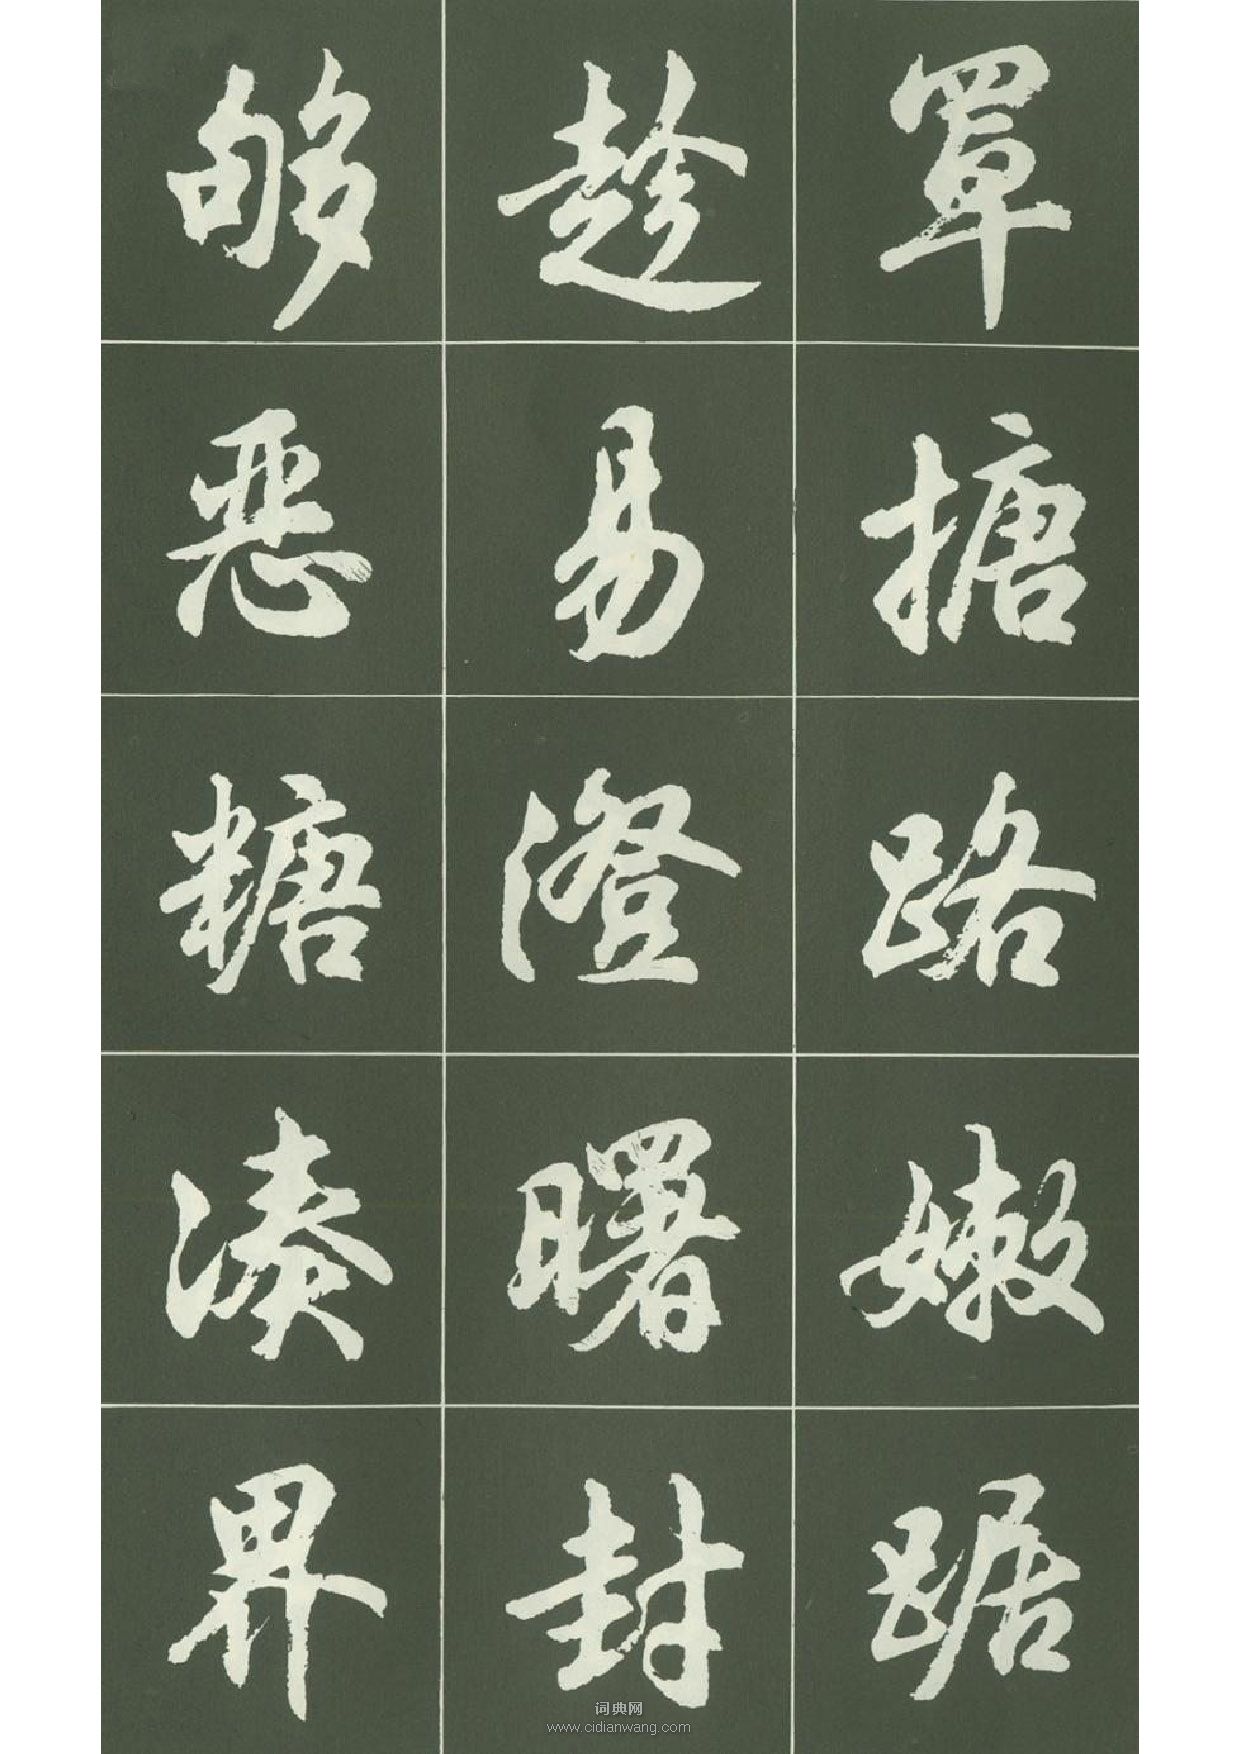 罩搪路嫩踞
趁易澄曙封
够恶糖凑界
词典网
www.cidianwang.com